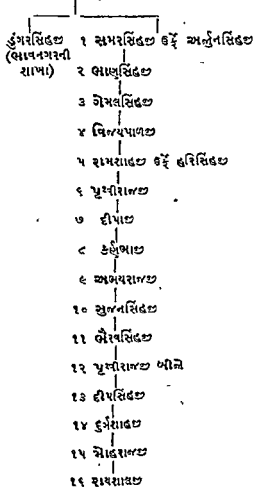 ડુંગરસિંહજી
(ભાવનગરની
શાખા)
૧ સમરસિંહજી ઉર્ફે અર્જુનસિંહજી
૨ ભાણસિંહજી
૩ ગેમલસિંહજી
૪ વિજયપાળજી
૫ રામશાહજી ઉર્ફે હરિસિંહજી
૬ પૃથ્વીરાજજી
૭ દીપાજી
૮ કર્ણભાજી
૯ અભયરાજજી
૧૦ સુજનસિંહજી
૧૧ ભૈરવસિંહજી
૧૨ પૃથ્વીરાજજી બીજો
૧૩ દીપસિંહજી
૧૪ દુર્ગશાહજી
૧૫ મોહરાજજી
૧૬ રાયશાલજી